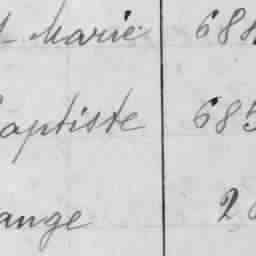 Marie 684
aptiste 685
ange 2